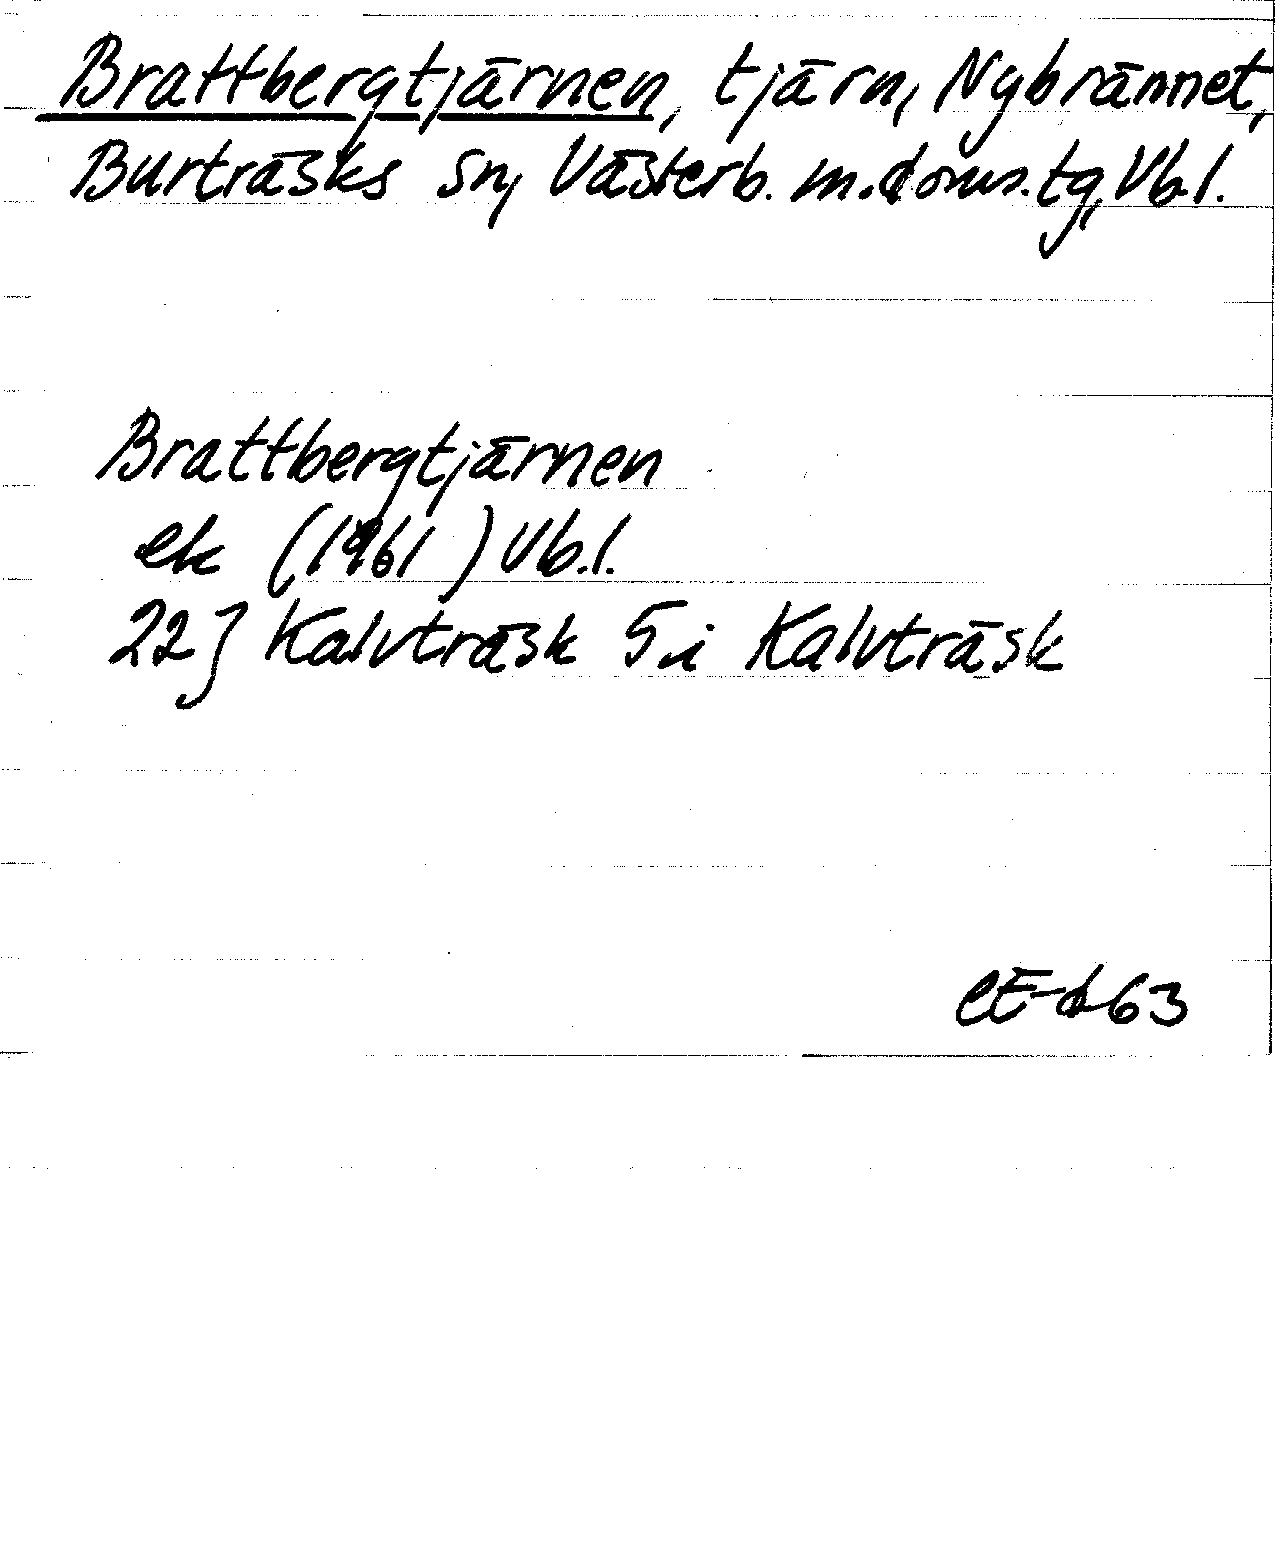 Brattbergtjärnen, tjärn, Nybrännet,
Burträsks sn, Västerb. m. doms. tg, Vb.l.
Brattbergtjärnen
ek (1961) Vb.l.
22J Kalvträsk 5i Kalvträsk
63